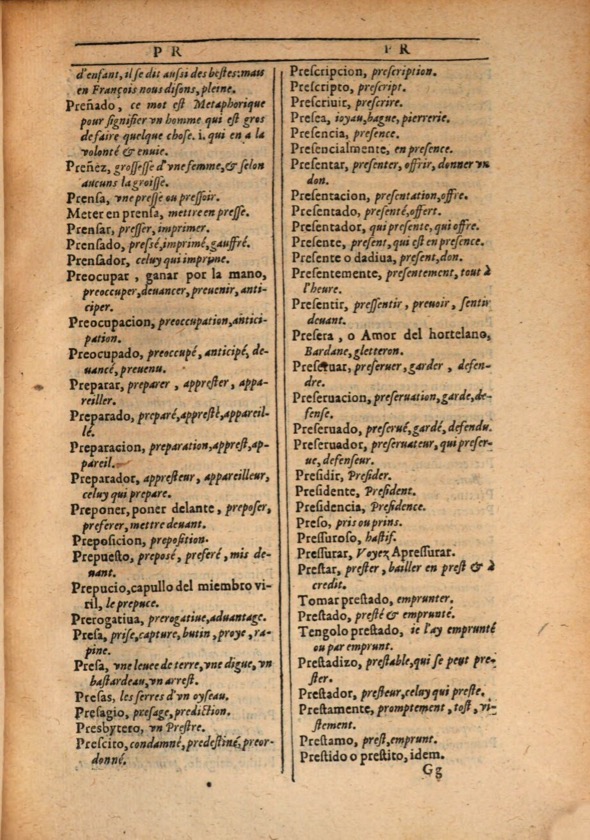 P R
d'enfant, il se dit aussi des bestes: mais
en François nous disons, pleine.
Preñado, ce mot est Metaphorique
pour signifier vn homme qui est gros
de faire quelque chose. i. qui en a la
volonté & enuie.
Preñez, grossesse d'vne femme, & selon
aucuns la groisse.
Prensa, vne presse ou pressoir.
Meter en prensa, mettre en presse.
Prensar, presser, imprimer.
Prensado, pressé, imprimé, gauffré.
Prensador, celuy qui imprime.
Preocupar, ganar por la mano,
preoccuper, deuancer, preuenir, anti-
ciper.
Preocupacion, preoccupation, antici-
pation.
Preocupado, preoccupé, anticipé, de-
uancé, preuenu.
Preparar, preparer, apprester, appa-
reiller.
Preparado, preparé, appresté, appareil-
lé.
Preparacion, preparation, apprest, ap-
pareil.
Preparador, appresteur, appareilleur,
celuy qui prepare.
Preponer, poner delante, preposer,
preferer, mettre deuant.
Preposicion, preposition.
Prepuesto, preposé, preferé, mis de-
uant.
Prepucio, capullo del miembro vi-
ril, le prepuce.
Prerogatiua, prerogatiue, aduantage.
Presa, prise, capture, butin, proye, ra-
pine.
Presa, vne leuee de terre, vne digue, vn
bastardeau, vn arrest.
Presas, les serres d'vn oyseau.
Presagio, presage, prediction.
Presbytero, vn Prestre.
Prescito, condamné, predestiné, preor-
donné.
P R
Prescripcion, prescription.
Prescripto, prescript.
Prescriuir, prescrire.
Presea, ioyau, bague, pierrerie.
Presencia, presence.
Presencialmente, en presence.
Presentar, presenter, offrir, donner vn
don.
Presentacion, presentation, offre.
Presentado, presenté, offert.
Presentador, qui presente, qui offre.
Presente, present, qui est en presence.
Presente o dadiua, present, don.
Presentemente, presentement, tout à
l'heure.
Presentir, pressentir, preuoir, sentir
deuant.
Presera, o Amor del hortelano,
Bardane, gletteron.
Preseruar, preseruer, garder, defen-
dre.
Preseruacion, preseruation, garde, de-
fense.
Preseruado, preserué, gardé, defendu.
Preseruador, preseruateur, qui preser-
ue, defenseur.
Presidir, Presider.
Presidente, President.
Presidencia, Presidence.
Preso, pris ou prins.
Pressuroso, hastif.
Pressurar, Voyez Apressurar.
Prestar, prester, bailler en prest & à
credit.
Tomar prestado, emprunter.
Prestado, presté & emprunté.
Tengolo prestado, ie l'ay emprunté
ou par emprunt.
Prestadizo, prestable, qui se peut pre-
ster.
Prestador, presteur, celuy qui preste.
Prestamente, promptement, tost, vi-
stement.
Prestamo, prest, emprunt.
Prestido o prestito, idem.
Gg